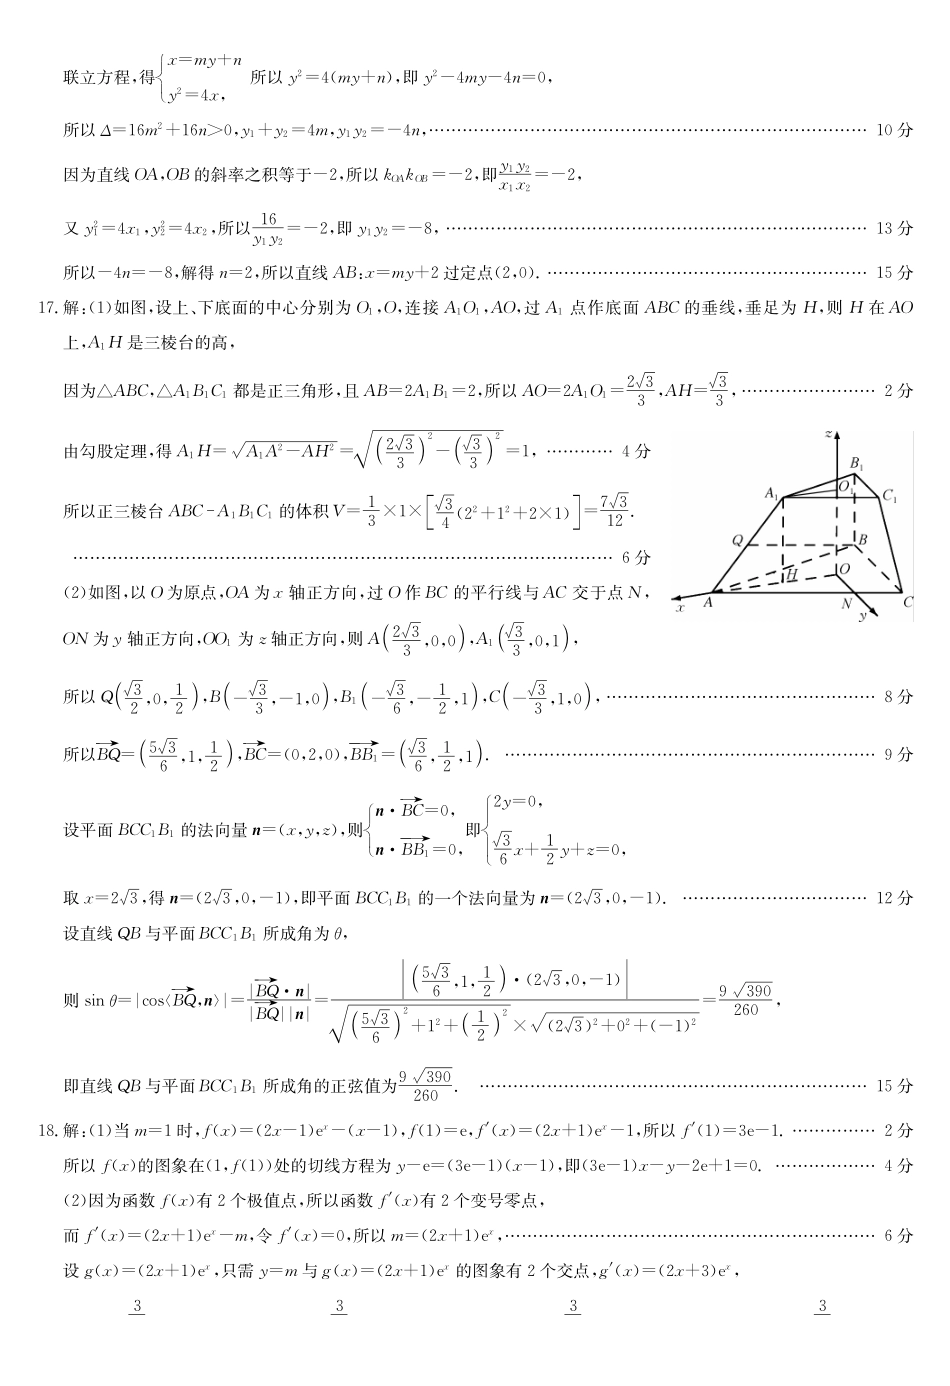 联立方程,得{x=my+n y²=4x, 所以 y²=4(my+n),即 y²-4my-4n=0,
所以 Δ=16m²+16n>0,y₁+y₂=4m,y₁y₂=-4n,……………………………… 10 分
因为直线 OA,OB 的斜率之积等于-2,所以 k_OA k_OB=-2,即 y₁y₂/x₁x₂=-2,
又 y₁²=4x₁,y₂²=4x₂,所以 16/y₁y₂=-2,即 y₁y₂=-8,……………………………… 13 分
所以-4n=-8,解得 n=2,所以直线 AB:x=my+2 过定点(2,0). ……………………………… 15 分
17. 解:(1)如图,设上、下底面的中心分别为 O₁,O,连接 A₁O₁,AO,过 A₁ 点作底面 ABC 的垂线,垂足为 H,则 H 在 AO
上,A₁H 是三棱台的高,
因为△ABC,△A₁B₁C₁ 都是正三角形,且 AB=2A₁B₁=2,所以 AO=2A₁O₁=2√3/3,AH=√3/3,…………………… 2 分
由勾股定理,得 A₁H=√(A₁A²-AH²)=√((2√3/3)²-(√3/3)²)=1,………… 4 分
所以正三棱台 ABC-A₁B₁C₁ 的体积 V=1/3×1×[√3/4(2²+1²+2×1)]=7√3/12.
……………………………………………………………… 6 分
(2)如图,以 O 为原点,OA 为 x 轴正方向,过 O 作 BC 的平行线与 AC 交于点 N,
ON 为 y 轴正方向,OO₁ 为 z 轴正方向,则 A(2√3/3,0,0),A₁(√3/3,0,1),
z
B₁
A₁
O₁
C₁
Q
B
H
O
x
A
N
C
y
所以 Q(√3/2,0,1/2),B(-√3/3,-1,0),B₁(-√3/6,-1/2,1),C(-√3/3,1,0),……………………………… 8 分
所以BQ→=(5√3/6,1,1/2),BC→=(0,2,0),BB₁→=(√3/6,1/2,1). ……………………………… 9 分
设平面 BCC₁B₁ 的法向量 n=(x,y,z),则{n·BC→=0, n·BB₁→=0, 即{2y=0, √3/6x+1/2y+z=0,
取 x=2√3,得 n=(2√3,0,-1),即平面 BCC₁B₁ 的一个法向量为 n=(2√3,0,-1). ………………………… 12 分
设直线 QB 与平面 BCC₁B₁ 所成角为 θ,
则 sin θ=|cos⟨BQ→,n⟩|=|BQ→·n|/|BQ→||n|=|(5√3/6,1,1/2)·(2√3,0,-1)|/(√((5√3/6)²+1²+(1/2)²)×√((2√3)²+0²+(-1)²))=9√390/260,
即直线 QB 与平面 BCC₁B₁ 所成角的正弦值为9√390/260. ……………………………… 15 分
18. 解:(1)当 m=1 时,f(x)=(2x-1)eˣ-(x-1),f(1)=e,f′(x)=(2x+1)eˣ-1,所以 f′(1)=3e-1. …………… 2 分
所以 f(x)的图象在(1,f(1))处的切线方程为 y-e=(3e-1)(x-1),即(3e-1)x-y-2e+1=0. ……………… 4 分
(2)因为函数 f(x)有 2 个极值点,所以函数 f′(x)有 2 个变号零点,
而 f′(x)=(2x+1)eˣ-m,令 f′(x)=0,所以 m=(2x+1)eˣ,……………………………… 6 分
设 g(x)=(2x+1)eˣ,只需 y=m 与 g(x)=(2x+1)eˣ 的图象有 2 个交点,g′(x)=(2x+3)eˣ,
3 3 3 3